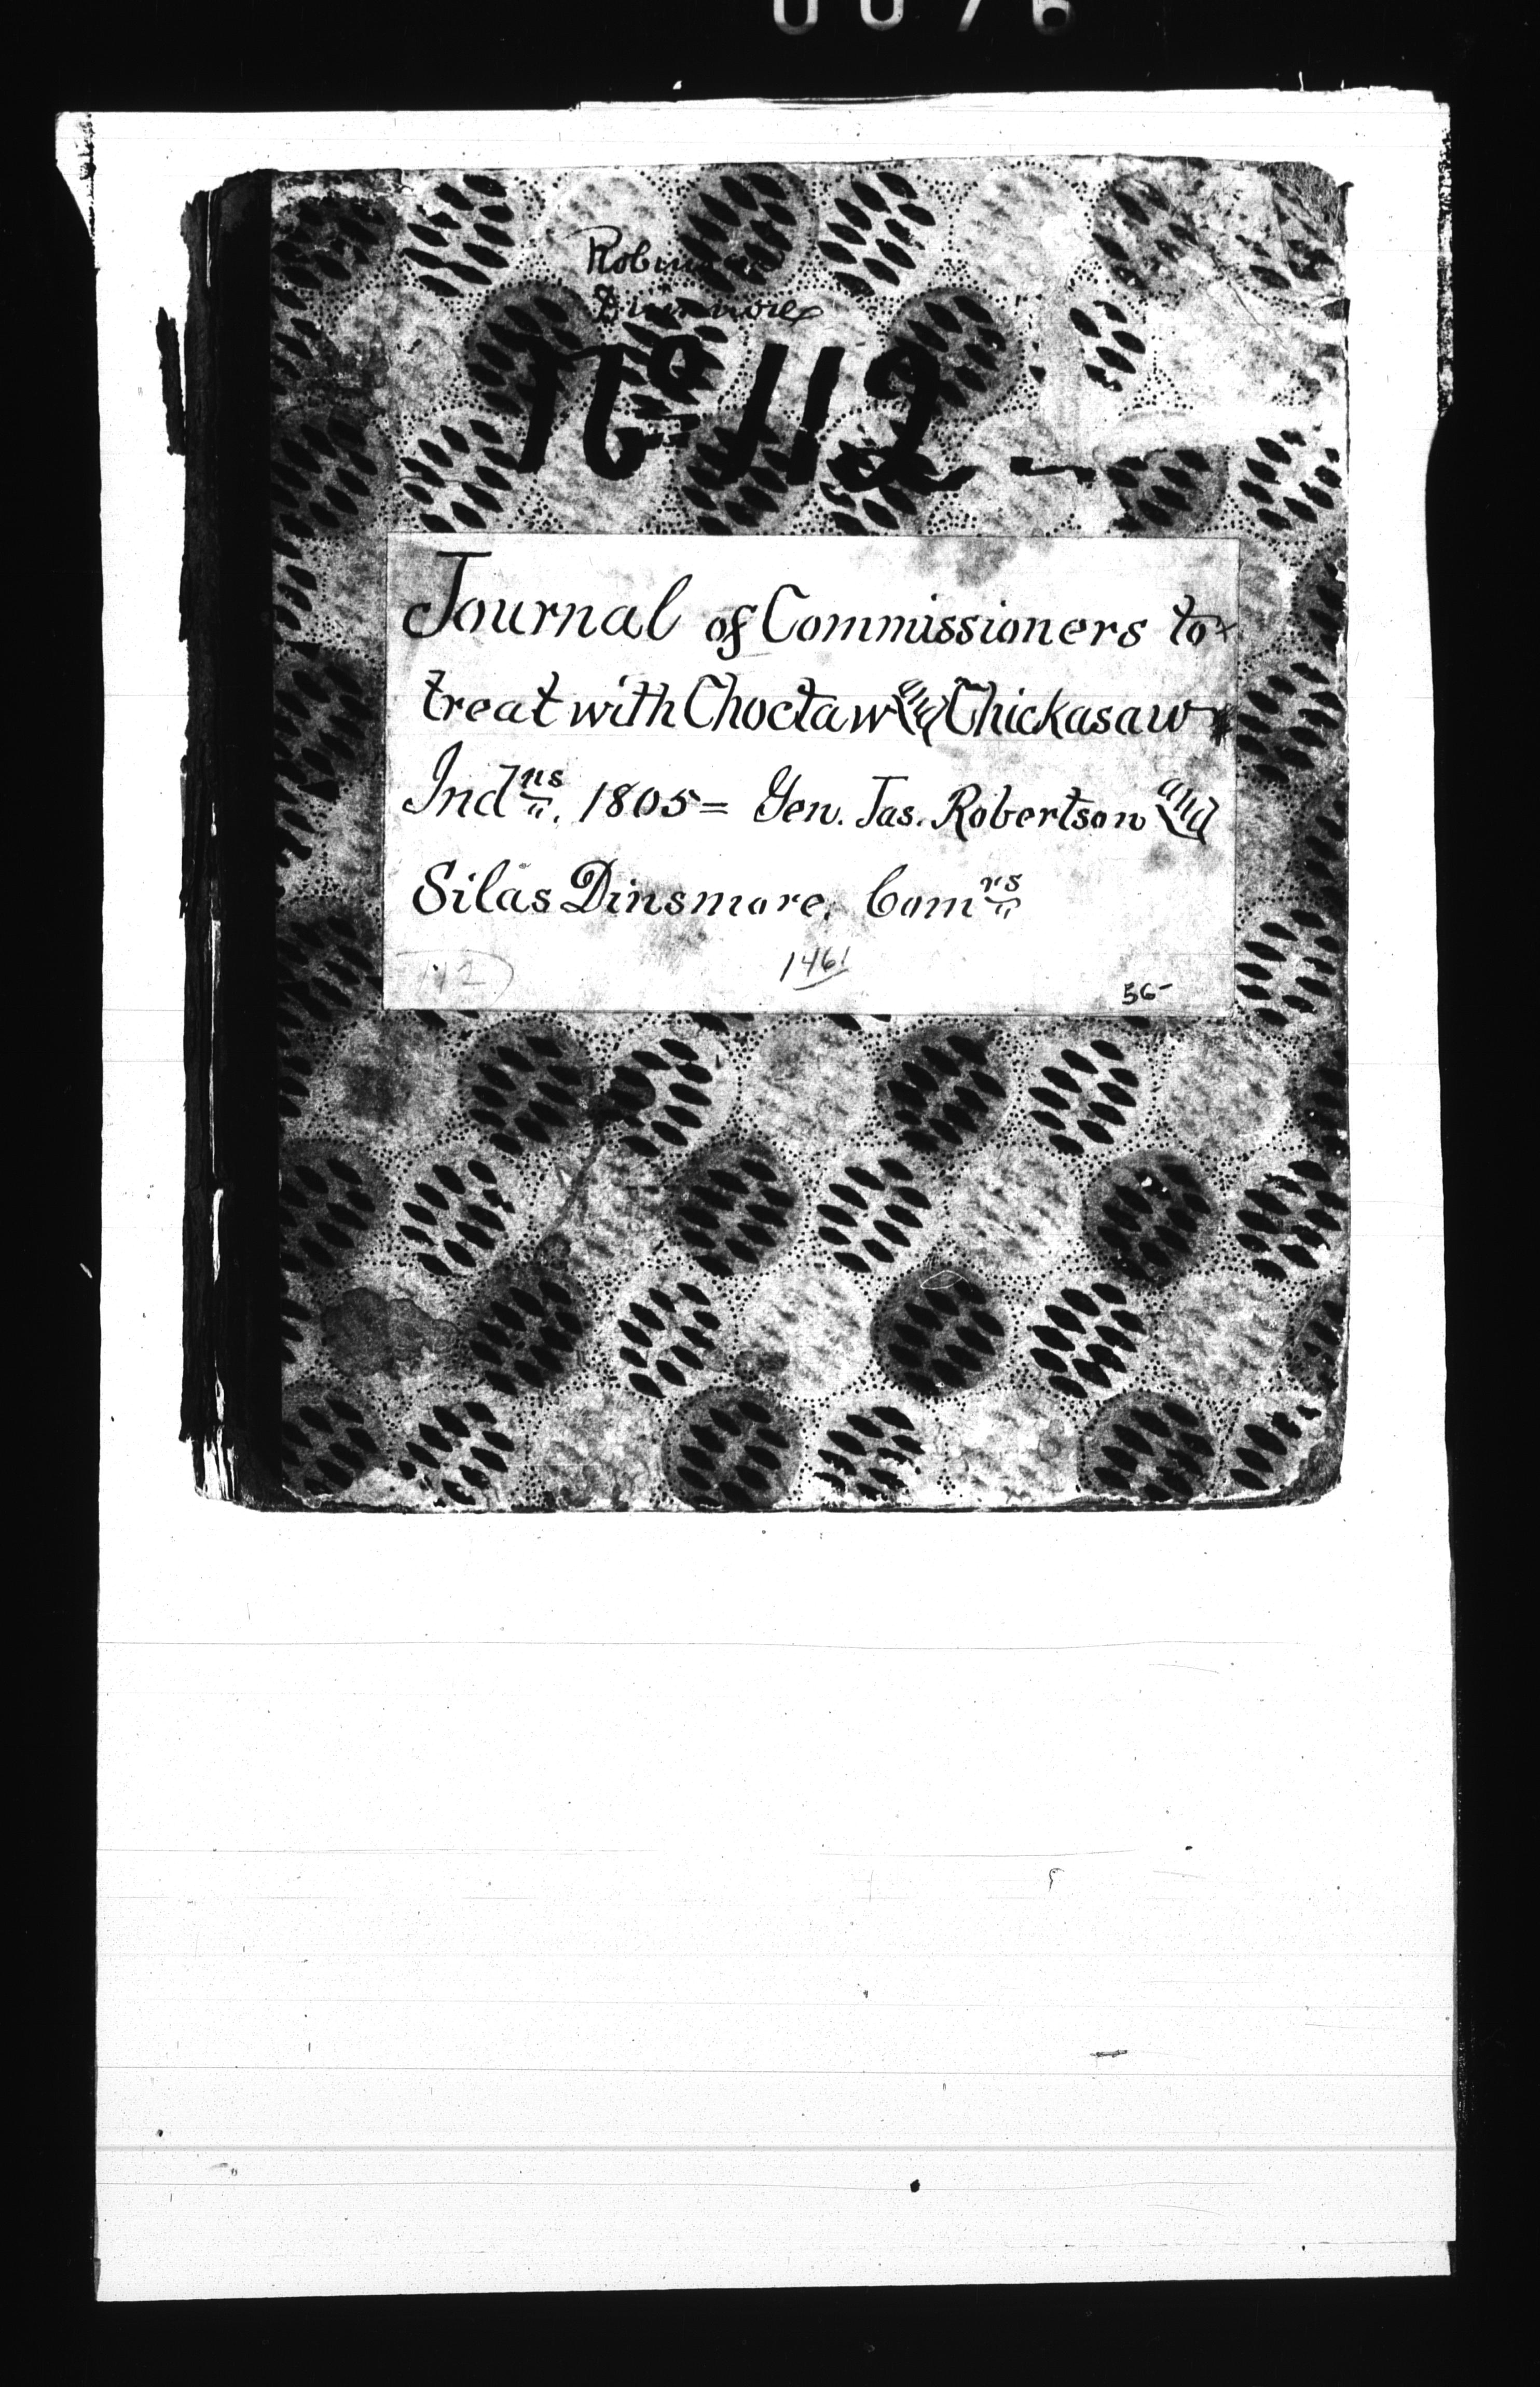 0076
Dinsmore
No 112 -
Journal of Commissioners to
treat with Choctaw and Chickasaw
Indns. 1805= Gen. Jas. Robertson and
Silas Dinsmore, Comrs
112
1461
56-